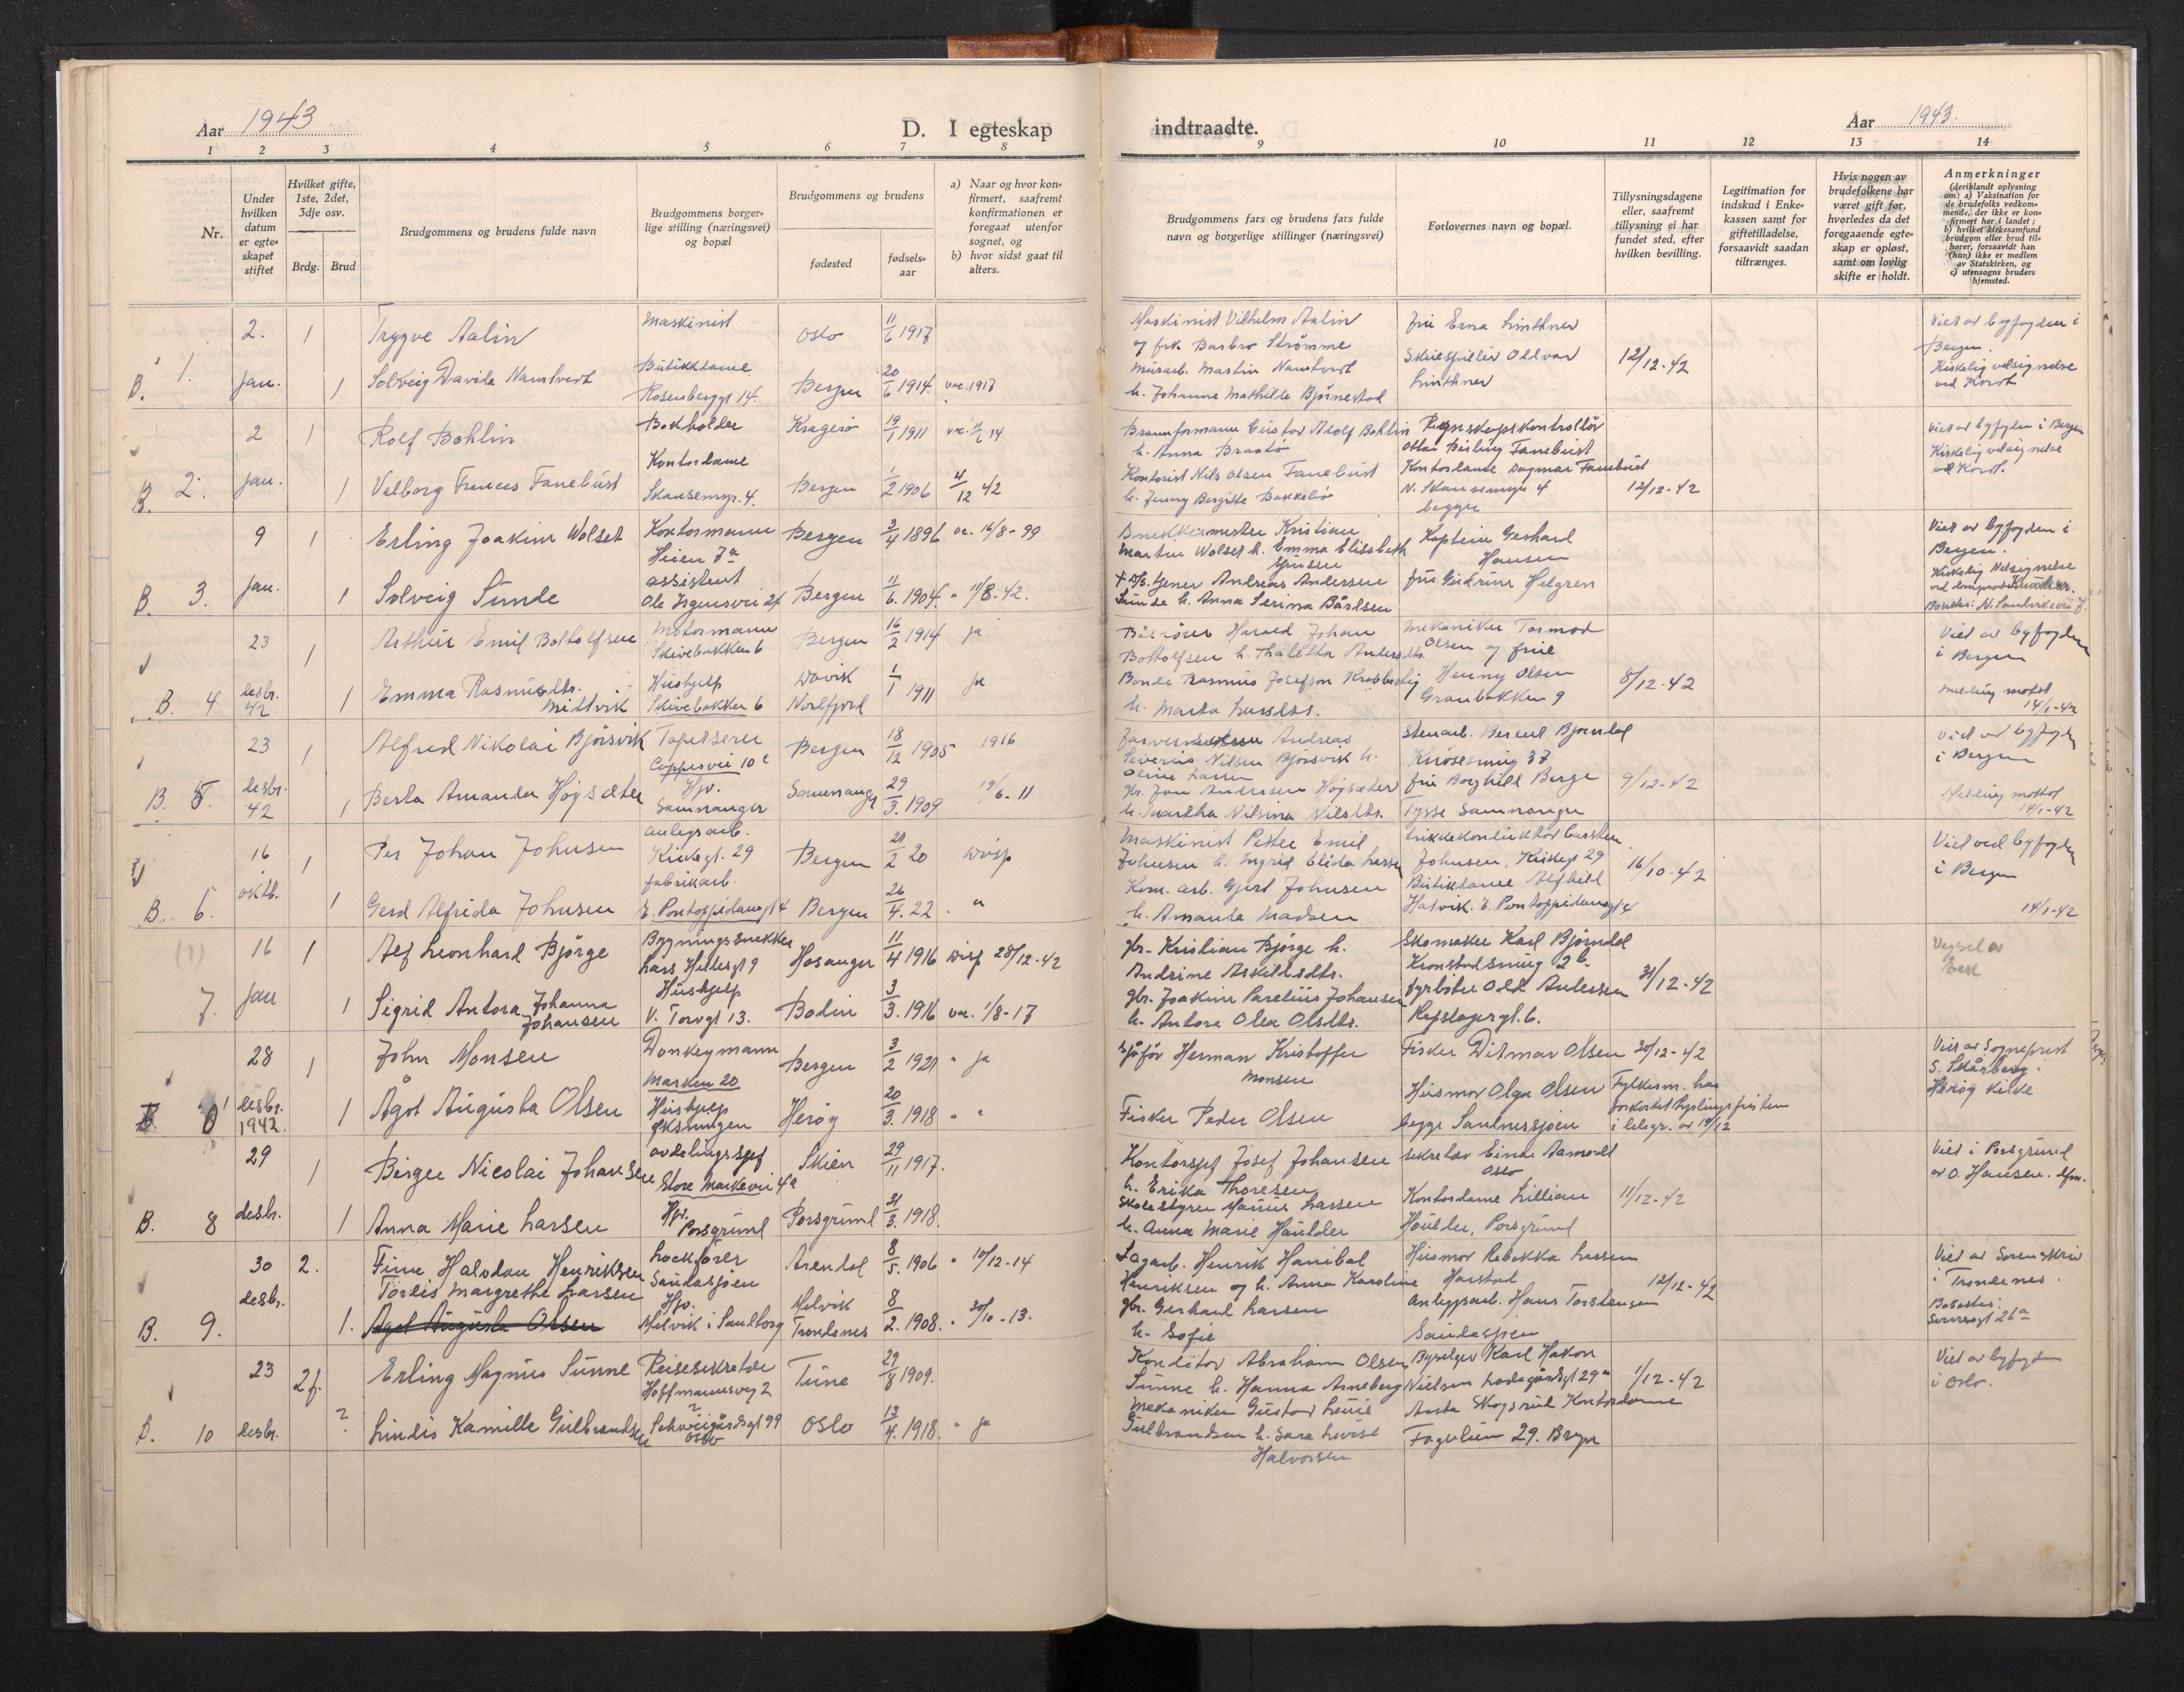 Aar 1943
D. I egteskap
1 2 3 4 5 6 7 8
Nr.
Under hvilken datum er egteskapet stiftet
Hvilket gifte, 1ste, 2det, 3dje osv.
Brdg. Brud
Brudgommens og brudens fulde navn
Brudgommens borgerlige stilling (næringsvei) og bopæl
Brudgommens og brudens
fødested
fødselsaar
a) Naar og hvor konfirmert, saafremt konfirmationen er foregaat utenfor sognet, og
b) hvor sidst gaat til alters.
B. 1. 2. Jan. 1 Trygve Aalin Maskinist Oslo 11/6 1917
1 Solveig Davida Namtvedt Butikkdame Rosenberggt 14. Bergen 20/6 1914. vac. 1917
B. 2. 2 Jan. 1 Rolf Bohlin Bokholder Kragerø 19/1 1911 vac. 11/6 14
1 Valborg Frances Fanebust Kontordame Skansemyr. 4. Bergen 1/2 1906 4/12 42
B. 3. 9 Jan. 1 Erling Joakim Wolset Kontormann Heien 7a Bergen 3/4 1896 va. 16/8-99
1 Solveig Sunde assistent Ole Irgensvei 27 Bergen 11/6. 1904. " 11/8-42.
B. 4 23 desbr. 42 1 Arthur Emil Bottolfsen Motormann Skivebakken 6 Bergen 16/2 1914 ja
1 Emma Rasmusdtr. Mittvik Hushjelp Skivebakken 6 Nordfjord 1/1 1911 ja
B. 5. 23 desbr. 42 1 Alfred Nikolai Bjørsvik Tapetserer Cappesvei 10c Bergen 18/12 1905 1916
1 Berta Amanda Høysæter Hjv. Samnanger Samnanger 29/3. 1909 19/6-11
B. 6. 16 oktb. 1 Per Johan Johnsen anlegsarb. Kirkegt. 29 Bergen 21/2 20 
1 Gerd Alfrida Johnsen fabrikarb. E. Pontoppidansgt 4 Bergen 26/4. 22 "
(1) 7. 16 Jan 1 Alf Leonhard Bjørge Bygningssnekker Lars Hillesgt 9 Hosanger 11/4 1916 28/12-42
1 Sigrid Antora Johanna Johansen Hushjelp V. Torvgt 13. Bodin 3/3. 1916 va. 1/8-17
B. 28 desbr. 1942. 1 John Monsen Donkeymann Marken 20 Bergen 3/2 1921 " ja
1 Ågot Augusta Olsen Hushjelp Øksningen Herøy 20/3. 1918 " "
B. 8 29 desbr. 1 Birger Nicolai Johansen avdelingssjef Store Markevei 4a Skien 29/11 1917.
1 Anna Marie Larsen Hjv. Porsgrund Porsgrund 31/3. 1918.
B. 9. 30 desbr. 2. Finn Halvdan Henriksen Sandasjøen Arendal 8/5. 1906 " 10/12-14
1. Torlis Margrethe Larsen Agot Augusta Olsen Hjv. Melvik i Sandtorg Melvik Trondenes 8/2. 1908. " 30/10-13.
B. 10 23 desbr. 2f. Erling Magnus Sunne Reisesekretær Hoffmannsveg 2 Tune 29/8 1909.
? Lindis Kamilla Gulbrandsen Schweigårdsgt 99 Oslo Oslo 13/4. 1918. " ja
indtraadte.
Aar 1943.
9 10 11 12 13 14
Brudgommens fars og brudens fars fulde navn og borgerlige stillinger (næringsvei)
Forlovernes navn og bopæl.
Tillysningsdagene eller, saafremt tillysning ei har fundet sted, efter hvilken bevilling.
Legitimation for indskud i Enkekassen samt for giftetilladelse, forsaavidt saadan tiltrænges.
Hvis nogen av brudefolkene har været gift før, hvorledes da det foregaaende egteskap er opløst, samt om lovlig skifte er holdt.
Anmerkninger
(deriblandt oplysning om: a) Vaksination for de brudefolks vedkommende, der ikke er konfirmert her i landet; b) hvilket kirkesamfund brudgom eller brud tilhører, forsaavidt han (hun) ikke er medlem av Statskirken, og c) utensogns bruders hjemsted.
Maskinist Vilhelm Aalin og frk Barbro Strømme
Murarb. Martin Namtvedt h. Johanne Mathilde Bjørnestad
fru Erna Linthner
Skuespiller Oddvar Linthner
12/12-42
Viet av byfogden i Bergen.
Kirkelig velsignelse ved Kordt
Brannformann Gustav Adolf Bohlin h. Anna Braatø
Kontorist Nils Olsen Fanebust h. Jenny Bergitte Bakkebø
Regnskapskontrollør Ottar Birling Fanebust
Kontordame Dagmar Fanebust N. Skansemyr 4 begge
12/12-42
Viet av byfogden i Bergen
Kirkelig velsignelse ved Kordt.
Kristian Martin Wolset h. Emma Elisabeth
Andreas Andersen Sunde h. Anna Serina Bårdsen
Kaptein Gerhard Hansen
fru Gudrun Helgren
Viet av byfogden i Bergen.
Kirkelig Velsignelse
Harald Johan Bottolfsen h. Thaletta
Bonde Rasmus Josefson h. Marta
Mekaniker Tormod Olsen og frue
Henny Olsen Granbakken 9
8/12-42
Viet av byfogden i Bergen
Melding mottat 14/1-42
Andreas Severin Nilsen Bjørsvik h. Oline Larsen
gbr. Jon Andersen Høysæter h. Martha Nilsina Nilsdtr.
Stenarb. Berent Bjørndal Knøsesmug 37
fru Borghild Berge Tysse Samnanger
9/12-42
Viet av byfogden i Bergen
Melding mottat 14/1-42
Maskinist Petter Emil Johnsen h. Ingrid Elida
Kom. arb. Gjert Johnsen h. Amanda Madsen
Johnsen, Kirkegt 29
Butikdame Alfhild Hatvik. E. Pontoppidansgt 4
16/10-42
Viet ved byfogden i Bergen
14/1-42
gbr. Kristian Bjørge h. Andrine Askildsdtr.
gbr. Joakim Parelius Johansen h. Antora Olea Olsdtr.
Skomaker Karl Bjørndal Kronstadsmug 2b.
fyrbøter Odd Andersen Repslagergt. 6.
31/12-42
Sjåfør Herman Kristoffer Monsen
Fisker Peder Olsen
Fisker Ditmar Olsen
Husmor Olga Olsen begge Sandnessjøen
30/12-42
Fylkesm. har forkortet lysningsfristen i telegr. av 19/12
Viet av Sogneprest S. Skårberg.
Herøy Kirke
Kontorsjef Josef Johansen h. Erika Thoresen
Skolestyrer Marius Larsen h. Anna Marie Haulder
sekretær Einar Aamodt Oslo
Kontordame Lillian Haulder, Porsgrund
11/12-42
Viet i Porsgrund av O. Hansen. dfm.
Lagarb. Henrik Hanibal Henriksen og h. Anna Karoline
gbr. Gerhard Larsen h. Sofie
Husmor Rebekka Larsen Harstad
Anleggsarb. Hans Torstensen Sandasjøen
12/12-42
Viet av Sorenskriv i Trondenes.
Bosted:
Konditor Abraham Olsen Sunne h. Hanna Arneberg
Mekaniker Gustav Louis Gulbrandsen h. Sara Lovise Halvorsen
Karl Hakon Nielsen Ladegårdsgt 29a
Aasta Skogsrud Kontordame Fagerlien 29. Bryn
1/12-42
Viet av byfogden i Oslo.